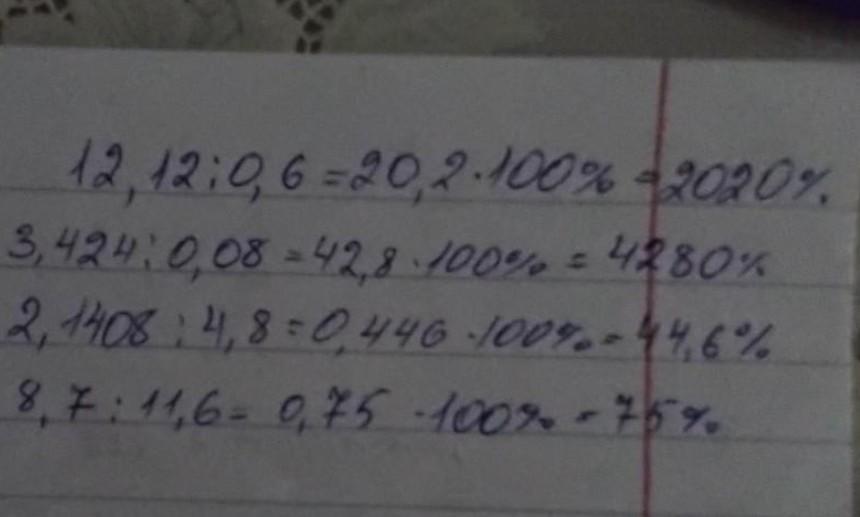 12,12:0,6=20,2·100%=2020%
3,424:0,08=42,8·100%=4280%
2,1408:4,8=0,446·100%=44,6%
8,7:11,6=0,75·100%=75%